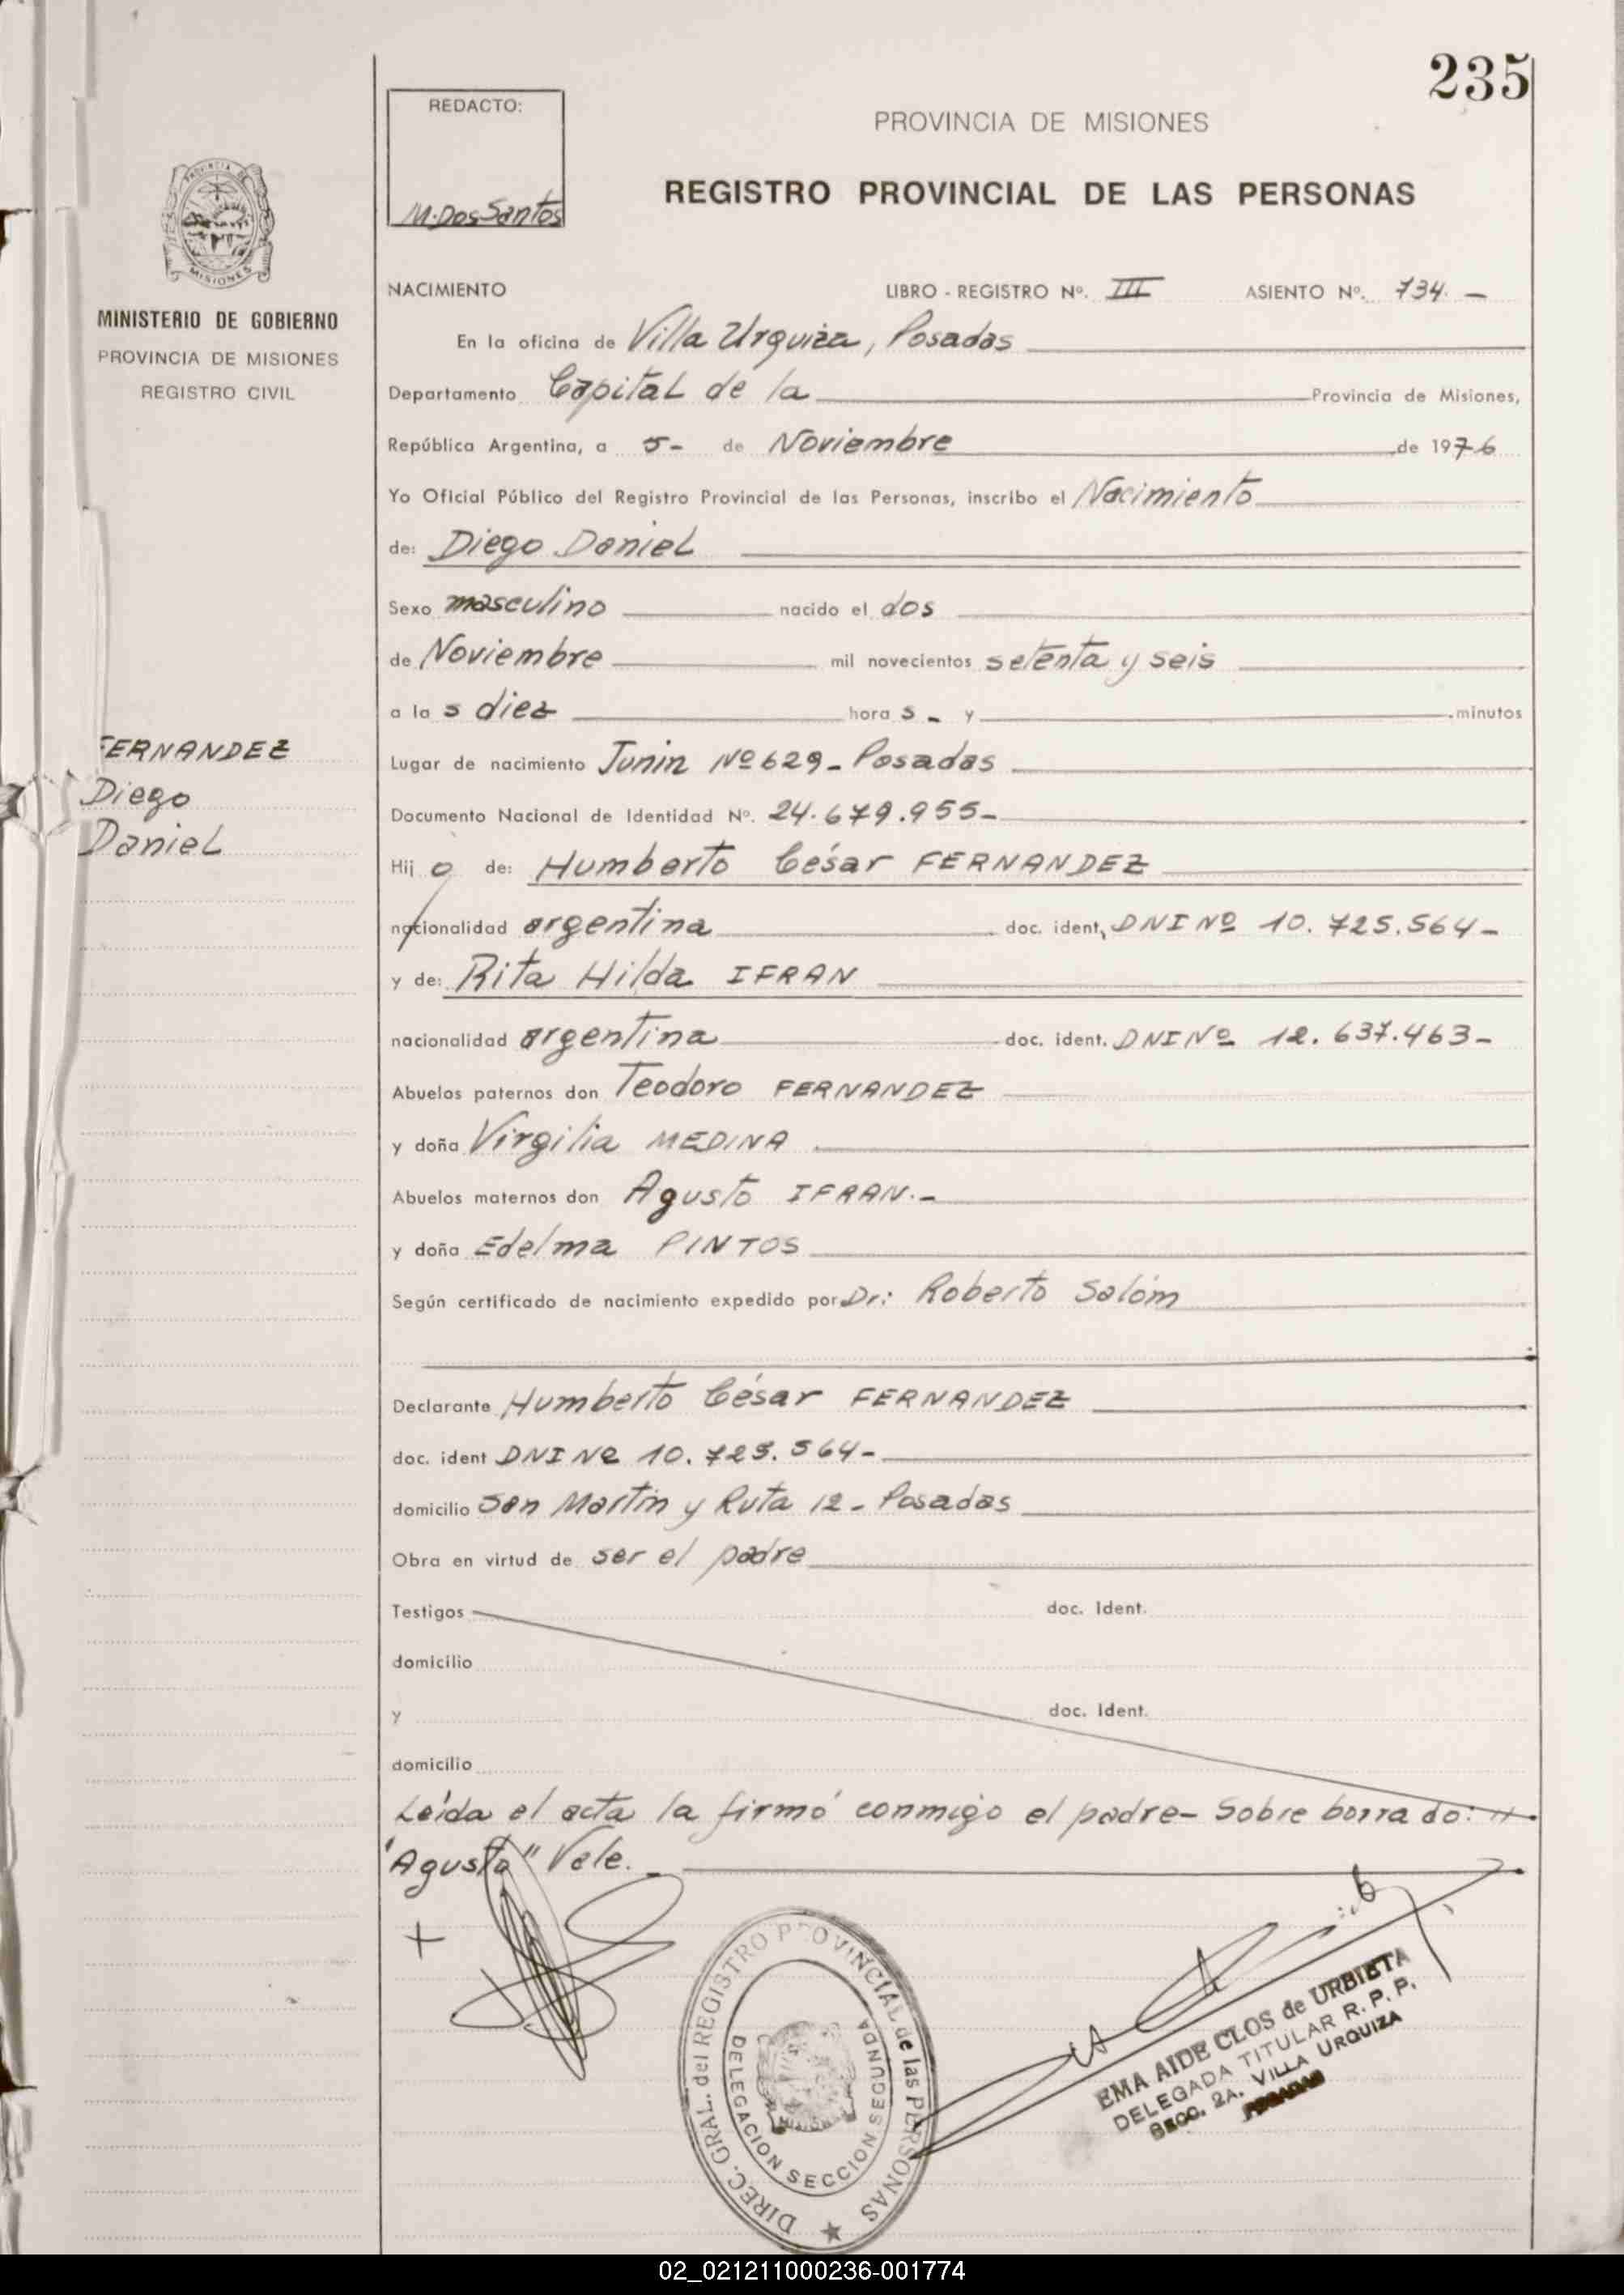 235
REDACTO:
M. Dos Santos
PROVINCIA DE MISIONES
REGISTRO PROVINCIAL DE LAS PERSONAS
PROVINCIA DE
MISIONES
MINISTERIO DE GOBIERNO
PROVINCIA DE MISIONES
REGISTRO CIVIL
NACIMIENTO LIBRO - REGISTRO Nº. III ASIENTO Nº. 734. -
En la oficina de Villa Urquiza, Posadas
Departamento Capital de la Provincia de Misiones,
República Argentina, a 5- de Noviembre de 1976
Yo Oficial Público del Registro Provincial de las Personas, inscribo el Nacimiento
de: Diego Daniel
Sexo masculino nacido el dos
de Noviembre mil novecientos setenta y seis
a la s diez hora s - y minutos
FERNANDEZ
Diego
Daniel
Lugar de nacimiento Junin Nº 629 - Posadas
Documento Nacional de Identidad Nº. 24.679.955-
Hij o de: Humberto César FERNANDEZ
nacionalidad argentina doc. ident, DNI Nº 10.725.564-
y de: Rita Hilda IFRAN
nacionalidad argentina doc. ident. DNI Nº 12.637.463-
Abuelos paternos don Teodoro FERNANDEZ
y doña Virgilia MEDINA
Abuelos maternos don Agusto IFRAN.-
y doña Edelma PINTOS
Según certificado de nacimiento expedido por Dr: Roberto Salóm
Declarante Humberto César FERNANDEZ
doc. ident DNI Nº 10.725.564-
domicilio San Martin y Ruta 12 - Posadas
Obra en virtud de ser el padre
Testigos doc. Ident.
domicilio
y doc. Ident.
domicilio
Leída el acta la firmó conmigo el padre- Sobre borrado: "
"Agusto" Vale.
DIREC. GRAL. del REGISTRO PROVINCIAL de las PERSONAS
DELEGACION SECCION SEGUNDA
EMA AIDE CLOS de URBIETA
DELEGADA TITULAR R. P. P.
SECC. 2A. VILLA URQUIZA
POSADAS
02_021211000236-001774